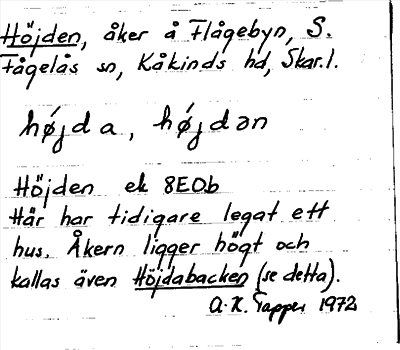 Höjden, åker å Flågebyn, S.
Fågelås sn, Kåkinds hd, Skar.l.
hǿjda, hǿjdən
Höjden ek 8E0b
Här har tidigare legat ett
hus. Åkern ligger högt och
kallas även Höjdabacken (se detta).
A.K. Tapper 1972